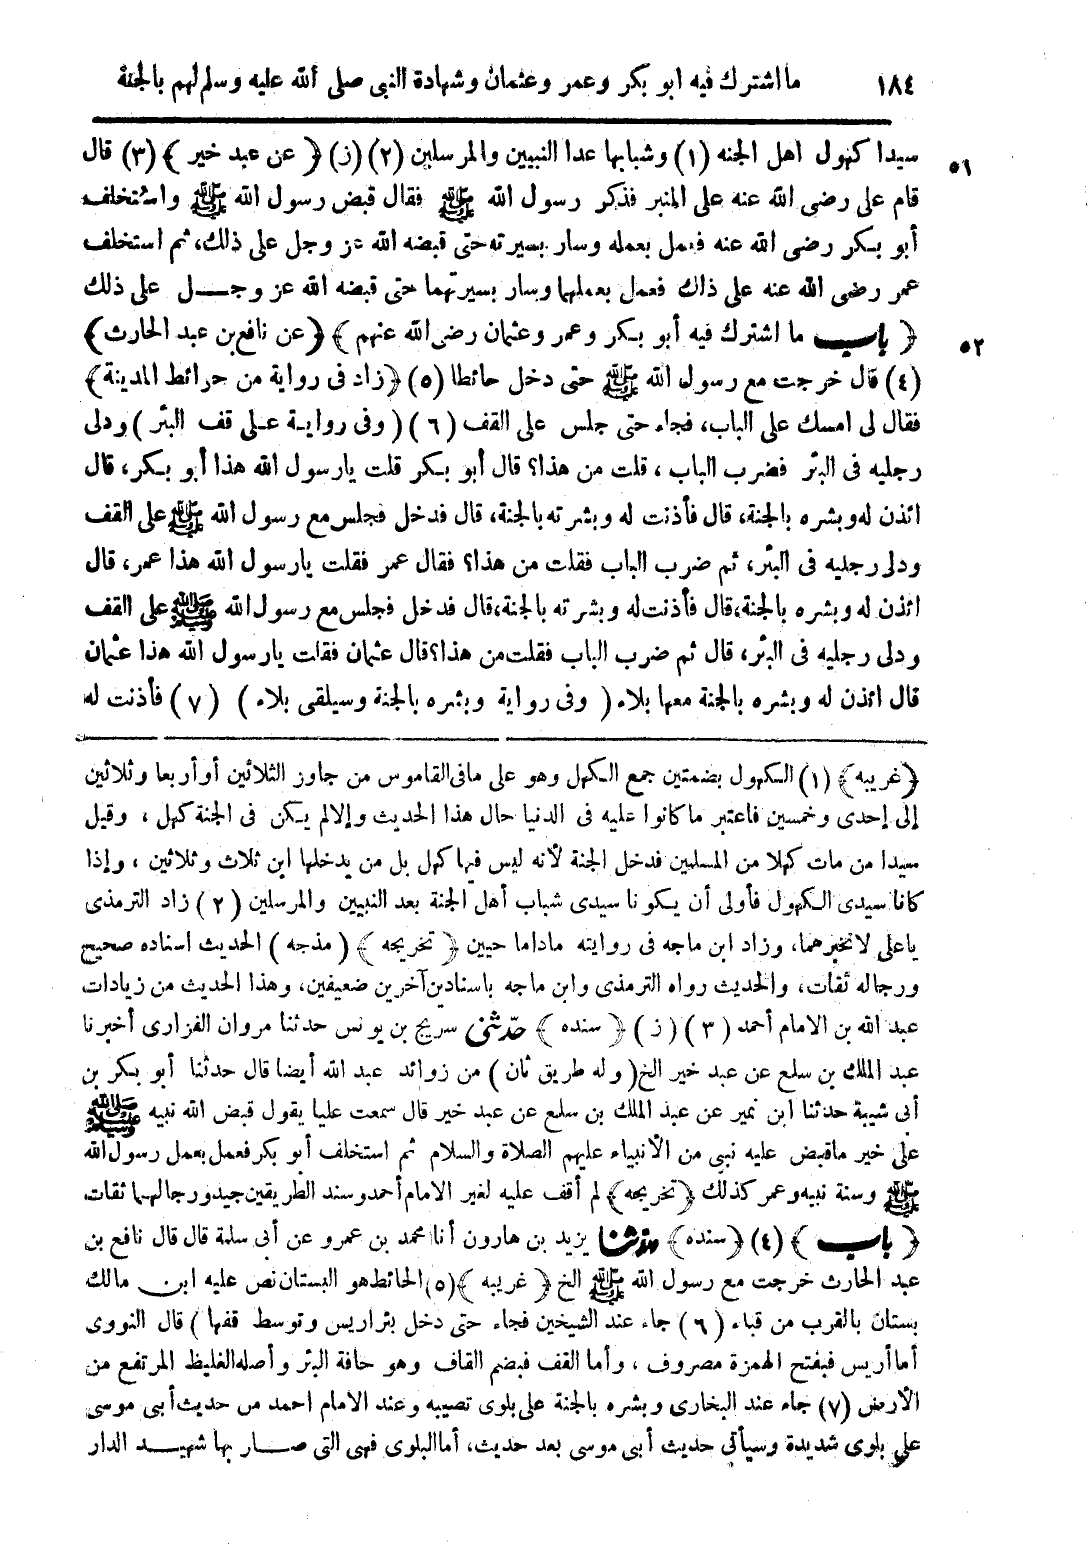 ١٨٤ ما اشترك فيه ابو بكر وعمر وعثمان وشهادة النبى صلى الله عليه وسلم لهم بالجنة
سيدا كهول اهل الجنه (١) وشبابها عدا النبيين والمرسلين (٢) (ز) ﴿ عن عبد خير ﴾ (٣) قال
٥١
قام على رضى الله عنه على المنبر فذكر رسول الله ﷺ فقال قبض رسول الله ﷺ واستخلف
أبو بكر رضى الله عنه فعمل بعمله وسار بسيرته حتى قبضه الله عز وجل على ذلك، ثم استخلف
عمر رضى الله عنه على ذاك فعمل بعملهما وسار بسيرتهما حتى قبضه الله عز وجل على ذلك
﴿ باب ما اشترك فيه أبو بكر وعمر وعثمان رضى الله عنهم ﴾ ﴿عن نافع بن عبد الحارث﴾
٥٢
(٤) قال خرجت مع رسول الله ﷺ حتى دخل حائطا (٥) ﴿زاد فى رواية من حوائط المدينة﴾
فقال لى امسك على الباب، فجاء حتى جلس على القف (٦) (وفى رواية على قف البئر) ودلى
رجليه فى البئر فضرب الباب ، قلت من هذا؟ قال أبو بكر قلت يارسول الله هذا أبو بكر، قال
ائذن له وبشره بالجنة، قال فأذنت له وبشرته بالجنة، قال فدخل فجلس مع رسول الله ﷺ على القف
ودلى رجليه فى البئر، ثم ضرب الباب فقلت من هذا؟ فقال عمر فقلت يارسول الله هذا عمر، قال
ائذن له وبشره بالجنة، قال فأذنت له وبشرته بالجنة، قال فدخل فجلس مع رسول الله ﷺ على القف
ودلى رجليه فى البئر، قال ثم ضرب الباب فقلت من هذا؟ قال عثمان فقلت يارسول الله هذا عثمان
قال ائذن له وبشره بالجنة معها بلاء ( وفى رواية وبشره بالجنة وسيلقى بلاء ) (٧) فأذنت له
﴿غريبه﴾ (١) الكهول بضمتين جمع الكهل وهو على مافى القاموس من جاوز الثلاثين أو أربعا وثلاثين
إلى إحدى وخمسين فاعتبر ما كانوا عليه فى الدنيا حال هذا الحديث وإلا لم يكن فى الجنة كهل ، وقيل
سيدا من مات كهلا من المسلمين فدخل الجنة لأنه ليس فيها كهل بل من يدخلها ابن ثلاث وثلاثين ، وإذا
كانا سيدى الكهول فأولى أن يكونا سيدى شباب أهل الجنة بعد النبيين والمرسلين (٢) زاد الترمذى
ياعلى لا تخبرهما، وزاد ابن ماجه فى روايته ماداما حيين ﴿ تخريجه ﴾ (مذجه) الحديث اسناده صحيح
ورجاله ثقات، والحديث رواه الترمذى وابن ماجه باسنادين آخرين ضعيفين، وهذا الحديث من زيادات
عبد الله بن الامام أحمد (٣) (ز) ﴿ سنده ﴾ حدثنى سريج بن يونس حدثنا مروان الفزارى أخبرنا
عبد الملك بن سلع عن عبد خير الخ (وله طريق ثان) من زوائد عبد الله أيضا قال حدثنا أبو بكر بن
أبى شيبة حدثنا ابن نمير عن عبد الملك بن سلع عن عبد خير قال سمعت عليا يقول قبض الله نبيه ﷺ
على خير ما قبض عليه نبى من الأنبياء عليهم الصلاة والسلام ثم استخلف أبو بكر فعمل بعمل رسول الله
ﷺ وسنة نبيه وعمر كذلك ﴿ تخريجه ﴾ لم أقف عليه لغير الامام أحمد وسند الطريقين جيد ورجالهما ثقات
﴿ باب ﴾ (٤) ﴿سنده﴾ حدثنا يزيد بن هارون أنا محمد بن عمرو عن أبى سلمة قال قال نافع بن
عبد الحارث خرجت مع رسول الله ﷺ الخ ﴿ غريبه ﴾ (٥) الحائط هو البستان نص عليه ابن مالك
بستان بالقرب من قباء (٦) جاء عند الشيخين فجاء حتى دخل بئر اريس وتوسط قفها ) قال النووى
أما أريس فبفتح الهمزة مصروف ، وأما القف فبضم القاف وهو حافة البئر وأصله الغليظ المرتفع من
الأرض (٧) جاء عند البخارى وبشره بالجنة على بلوى تصيبه وعند الامام احمد من حديث أبى موسى
على بلوى شديدة وسيأتى حديث أبى موسى بعد حديث، أما البلوى فهى التى صار بها شهيد الدار